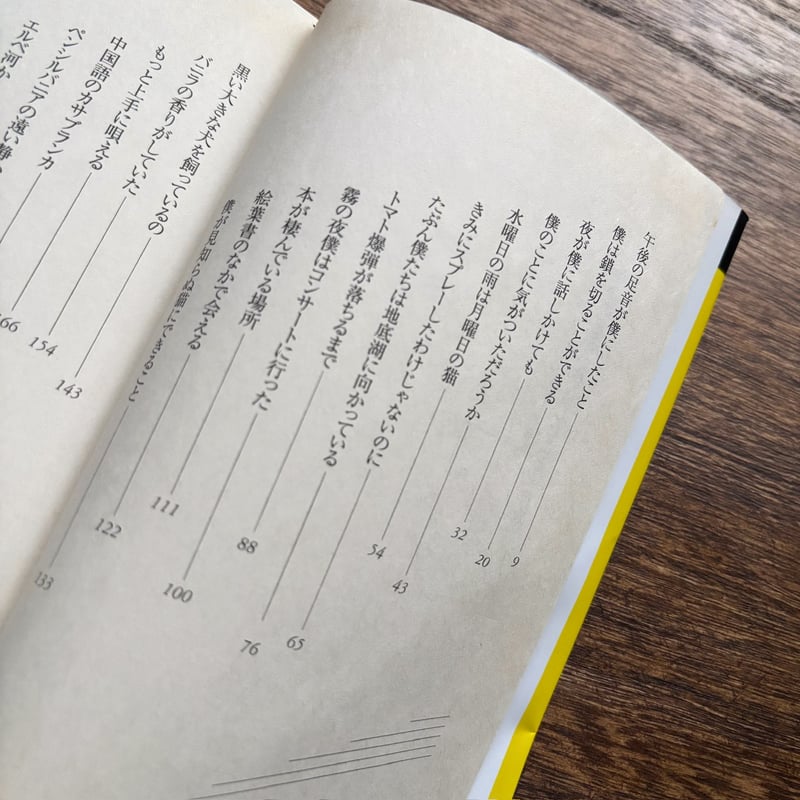 午後の足音が僕にしたこと 9
僕は鎖を切ることができる 20
夜が僕に話しかけても 32
僕のことに気がついただろうか 43
水曜日の雨は月曜日の猫 54
きみにスプレーしたわけじゃないのに 65
たぶん僕たちは地底湖に向かっている 76
トマト爆弾が落ちるまで 88
霧の夜僕はコンサートに行った 100
本が棲んでいる場所 111
絵葉書のなかで会える 122
僕が見知らぬ猫にできること 133
黒い大きな犬を飼っているの 143
バニラの香りがしていた 154
もっと上手に唄える 166
中国語のカサブランカ
ペンシルバニアの遠い静
エルベ河か